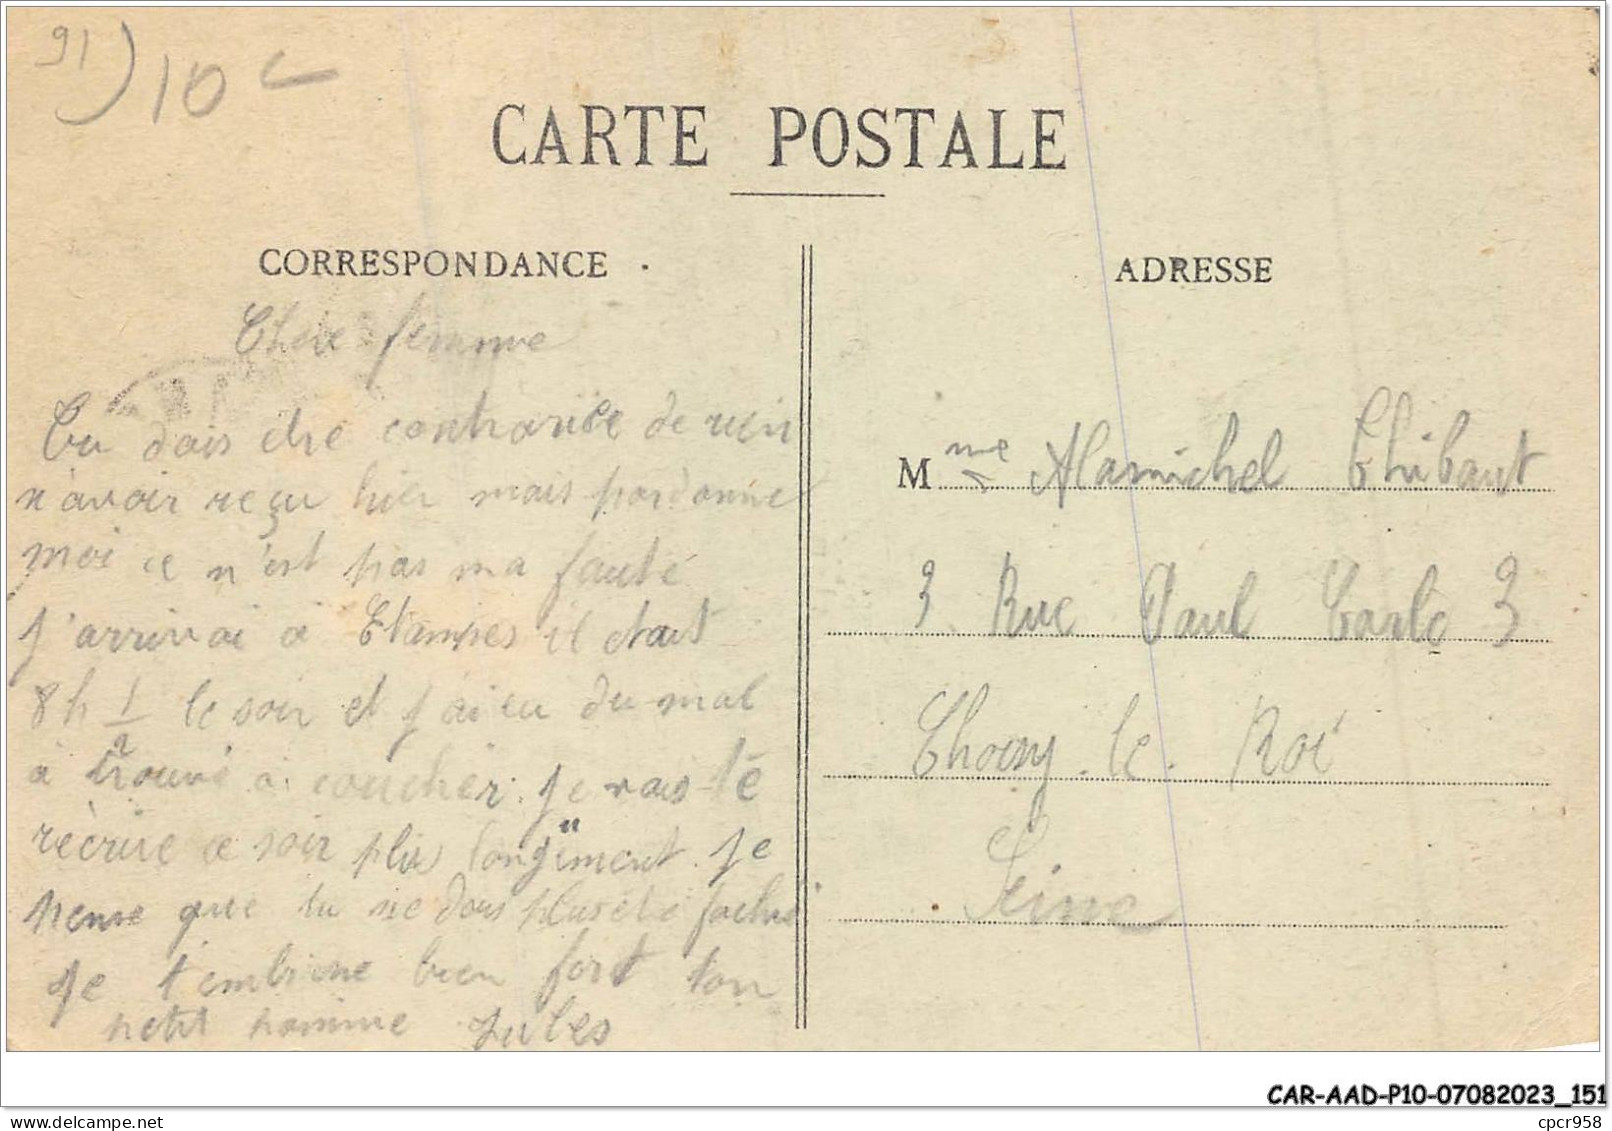 91) 10
CARTE POSTALE
CORRESPONDANCE
ADRESSE
Chere femme
Tu dois etre contrariée de rien
n'avoir reçu hier mais pardonne
moi ce n'est pas ma faute
j'arrivai à Etampes il etait
8h 1/2 le soir et j'ai eu du mal
a trouvé a coucher. je vais te
récrire ce soir plus longuement. je
pense que tu ne dois plus été faché
je t'embrasse bien fort ton
petit homme Jules
Mme Alamichel Thibaut
3 Rue Paul Carle 3
Choisy. le. Roi
Seine
CAR-AAD-P10-07082023_151
delcampe.net
cpcr958